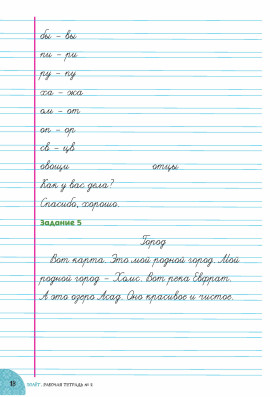 бы - вы
пи - ри
ру - пу
ха - жа
ом - от
оп - ор
св - цв
овощи отцы
Как у вас дела?
Спасибо, хорошо.
Задание 5
Город
Вот карта. Это мой родной город. Мой
родной город - Хомс. Вот река Евфрат.
А это озеро Асад. Оно красивое и чистое.
РАБОЧАЯ ТЕТРАДЬ № 2